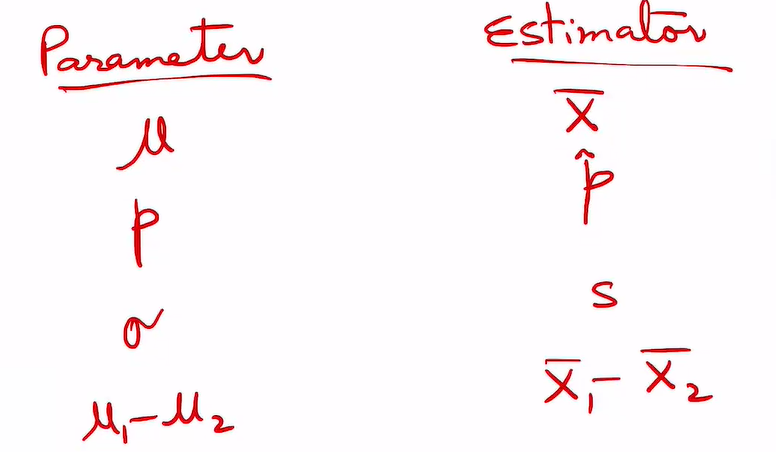 Parameter Estimator
μ x̄
p p̂
σ s
μ₁-μ₂ x̄₁- x̄₂